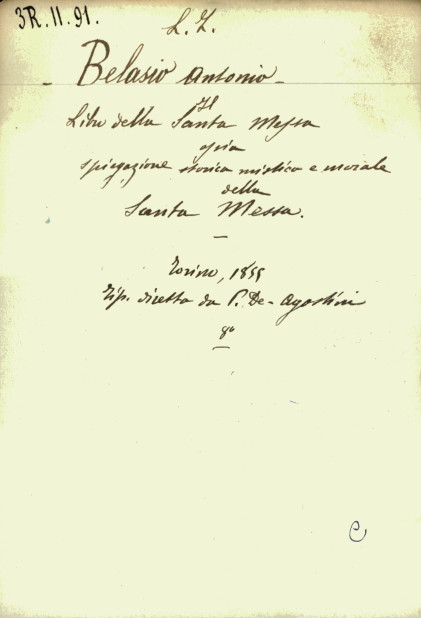 3R.11.91.
L. Z.
Belasio Antonio
Il
Libro della Santa Messa
ossia
spiegazione storica mistica e morale
della
Santa Messa.
Torino, 1855
Tip. diretta da P. De-Agostini
8°
C